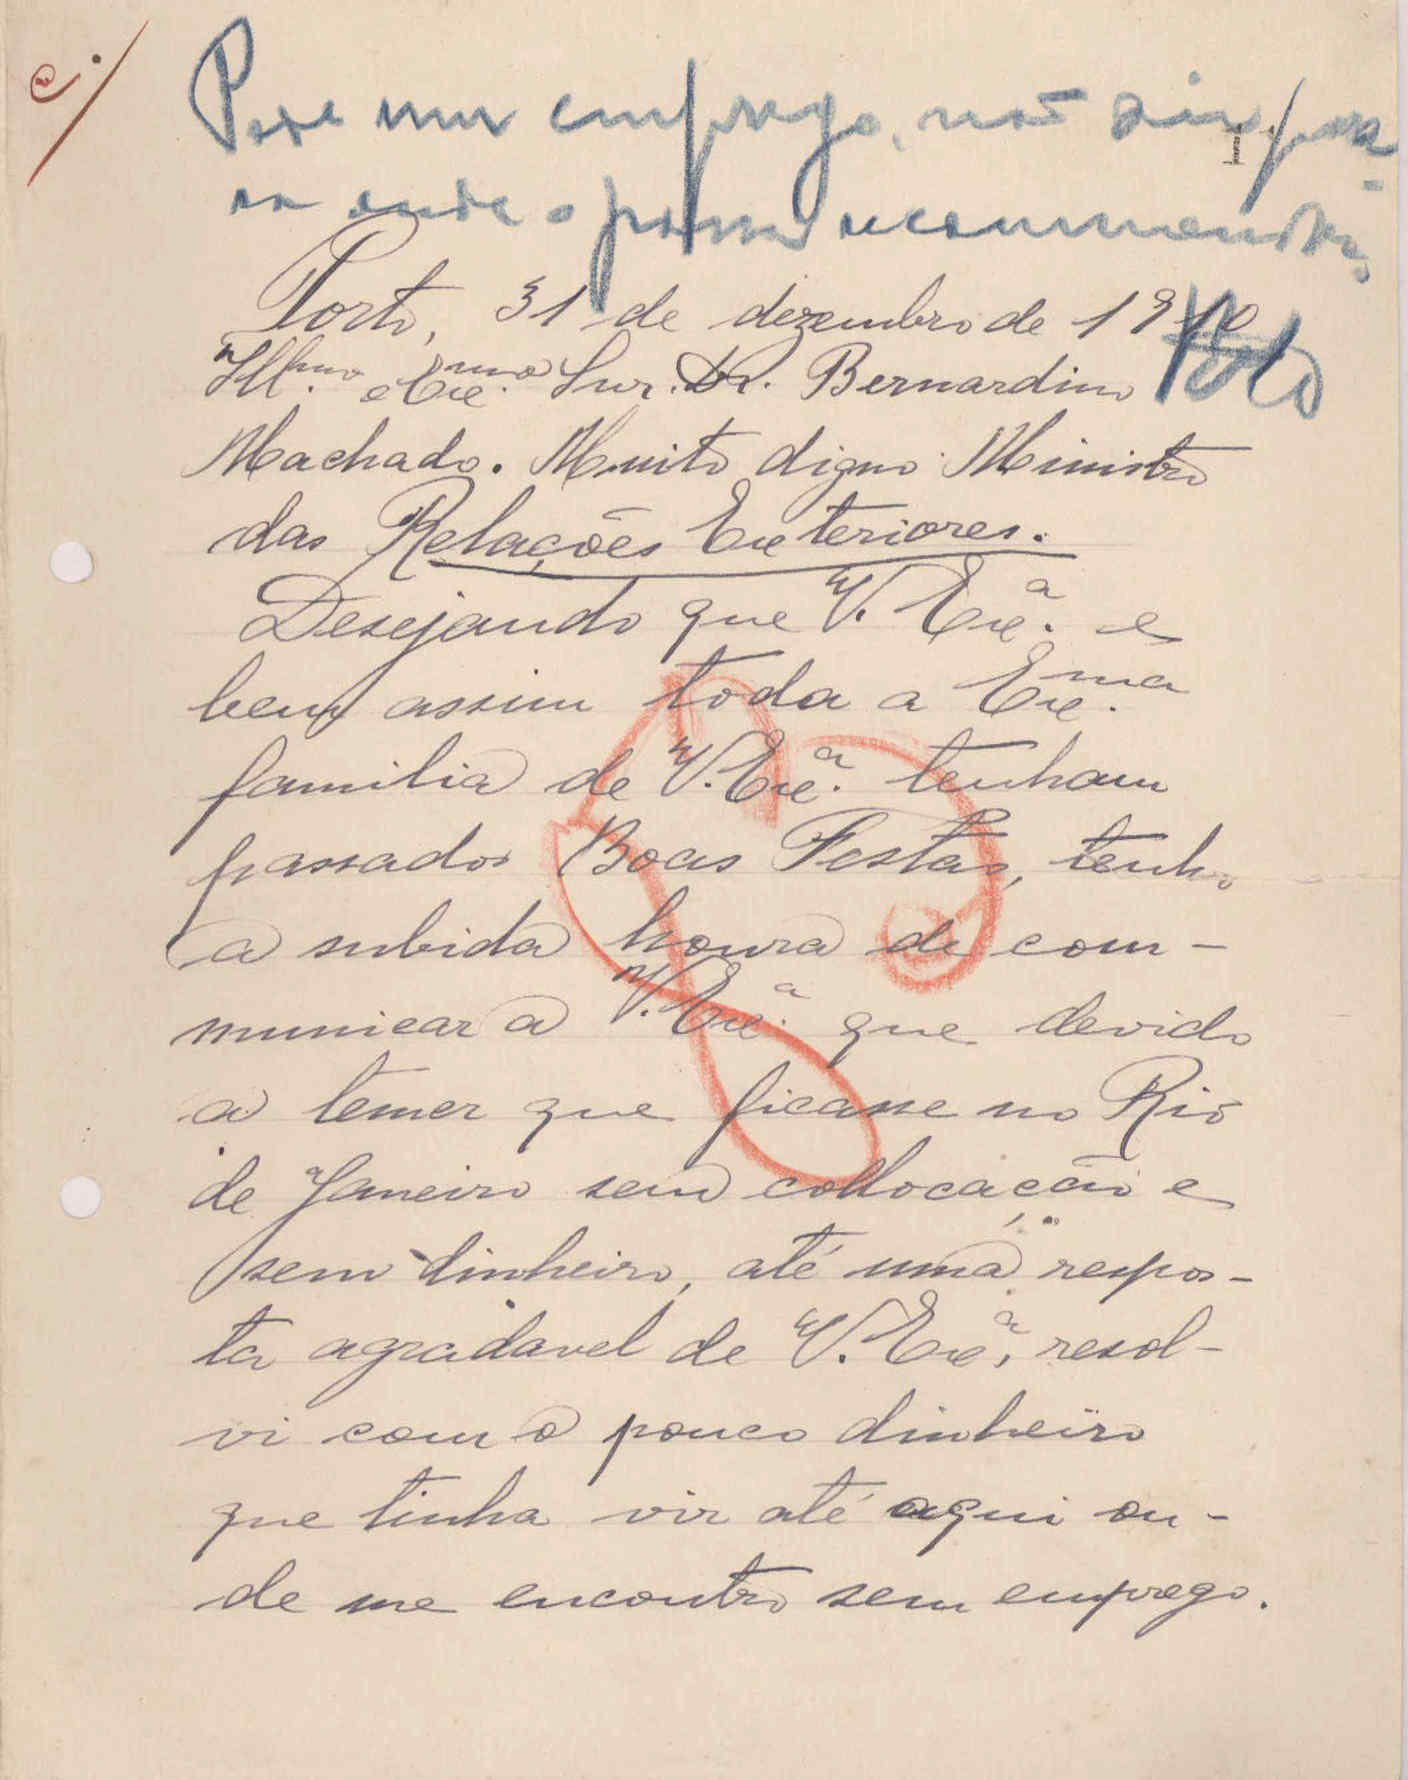 c./
Pede um emprego, não diz para
onde o possa recommendar,
Porto, 31 de dezembro de 1910
Ill.mo e Exc.mo Snr. Dr. Bernardino
Machado. Muito digno Ministro
das Relações Exteriores.
Desejando que V. Exc.a e
bem assim toda a Exc.ma
familia de V. Exc.a tenham
passados Boas Festas, tenho
a subida honra de com-
municar a V. Exc.a que devido
a temer que ficasse no Rio
de Janeiro sem collocação e
sem dinheiro, até uma respos-
ta agradavel de V. Exc.a, resol-
vi com o pouco dinheiro
que tinha vir até aqui on-
de me encontro sem emprego.